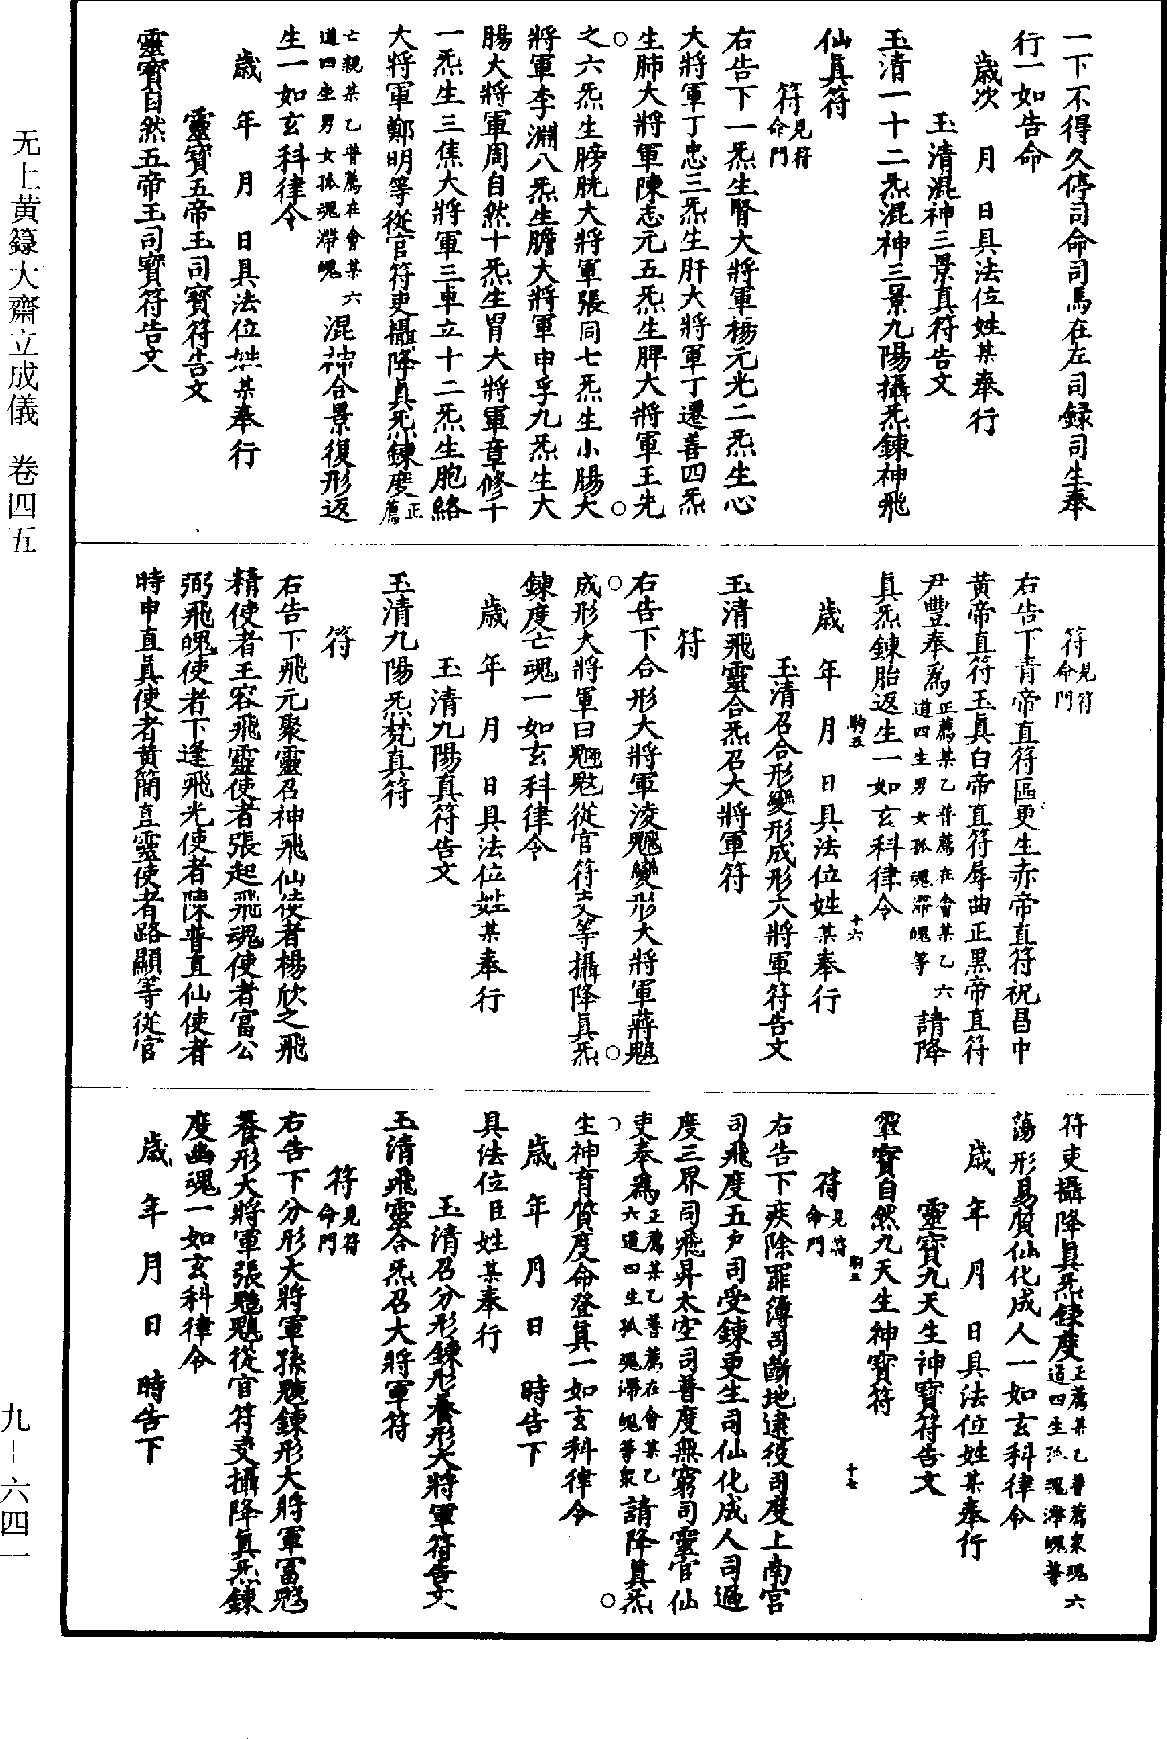 无上黃籙大齋立成儀 卷四五
九—六四一
一下不得久停司命司馬在左司録司生奉
行一如告命
歲次 月 日具法位姓某奉行
玉清混神三景真符告文
玉清一十二炁混神三景九陽攝炁鍊神飛
仙真符
符見符命門
右告下一炁生腎大將軍楊元光二炁生心
大將軍丁忠三炁生肝大將軍丁還善四炁
生肺大將軍陳志元五炁生脾大將軍王先
之六炁生膀胱大將軍張同七炁生小腸大
將軍李淵八炁生膽大將軍申孚九炁生大
腸大將軍周自然十炁生胃大將軍章修十
一炁生三焦大將軍三車立十二炁生胞絡
大將軍鄭明等從官符吏攝降真炁鍊度正薦
亡親某乙普薦在會某六道四生男女孤魂滯魄混神合景復形返
生一如玄科律令
歲 年 月 日具法位姓某奉行
靈寶五帝玉司寶符告文
靈寶自然五帝玉司寶符告文
符見符命門
右告下青帝直符區更生赤帝直符祝昌中
黃帝直符王真白帝直符辱曲正黑帝直符
尹豐奉為正薦某乙普薦在會某乙六道四生男女孤魂滯魄等請降
真炁鍊胎返生一如玄科律令
駒五 十六
歲 年 月 日具法位姓某奉行
玉清召合形變形成形大將軍符告文
玉清飛靈合炁召大將軍符
符
右告下合形大將軍淩變形大將軍蔣
成形大將軍曰從官符吏等攝降真炁
鍊度亡魂一如玄科律令
歲 年 月 日具法位姓某奉行
玉清九陽真符告文
玉清九陽炁梵真符
符
右告下飛元聚靈召神飛仙使者楊欣之飛
精使者王容飛靈使者張起飛魂使者富公
弼飛魄使者下逢飛光使者陳普直仙使者
時申直真使者黃簡直靈使者路顯等從官
符吏攝降真炁鍊度正薦某乙普薦衆魂六道四生孤魂滯魄等
蕩形易質仙化成人一如玄科律令
歲 年 月 日具法位姓某奉行
靈寶九天生神寶符告文
靈寶自然九天生神寶符
駒五 十七
符見符命門
右告下疾除罪簿司斷地逮役司度上南宮
司飛度五戶司受鍊更生司仙化成人司過
度三界司飛昇太空司普度無窮司靈官仙
吏奉為正薦某乙普薦在會某乙六道四生孤魂滯魄等衆請降真炁
生神育質度命登真一如玄科律令
歲 年 月 日 時告下
具法位臣姓某奉行
玉清召分形鍊形養形大將軍符告文
玉清飛靈合炁召大將軍符
符見符命門
右告下分形大將軍孫鍊形大將軍富
養形大將軍張從官符吏攝降真炁鍊
度幽魂一如玄科律令
歲 年 月 日 時告下